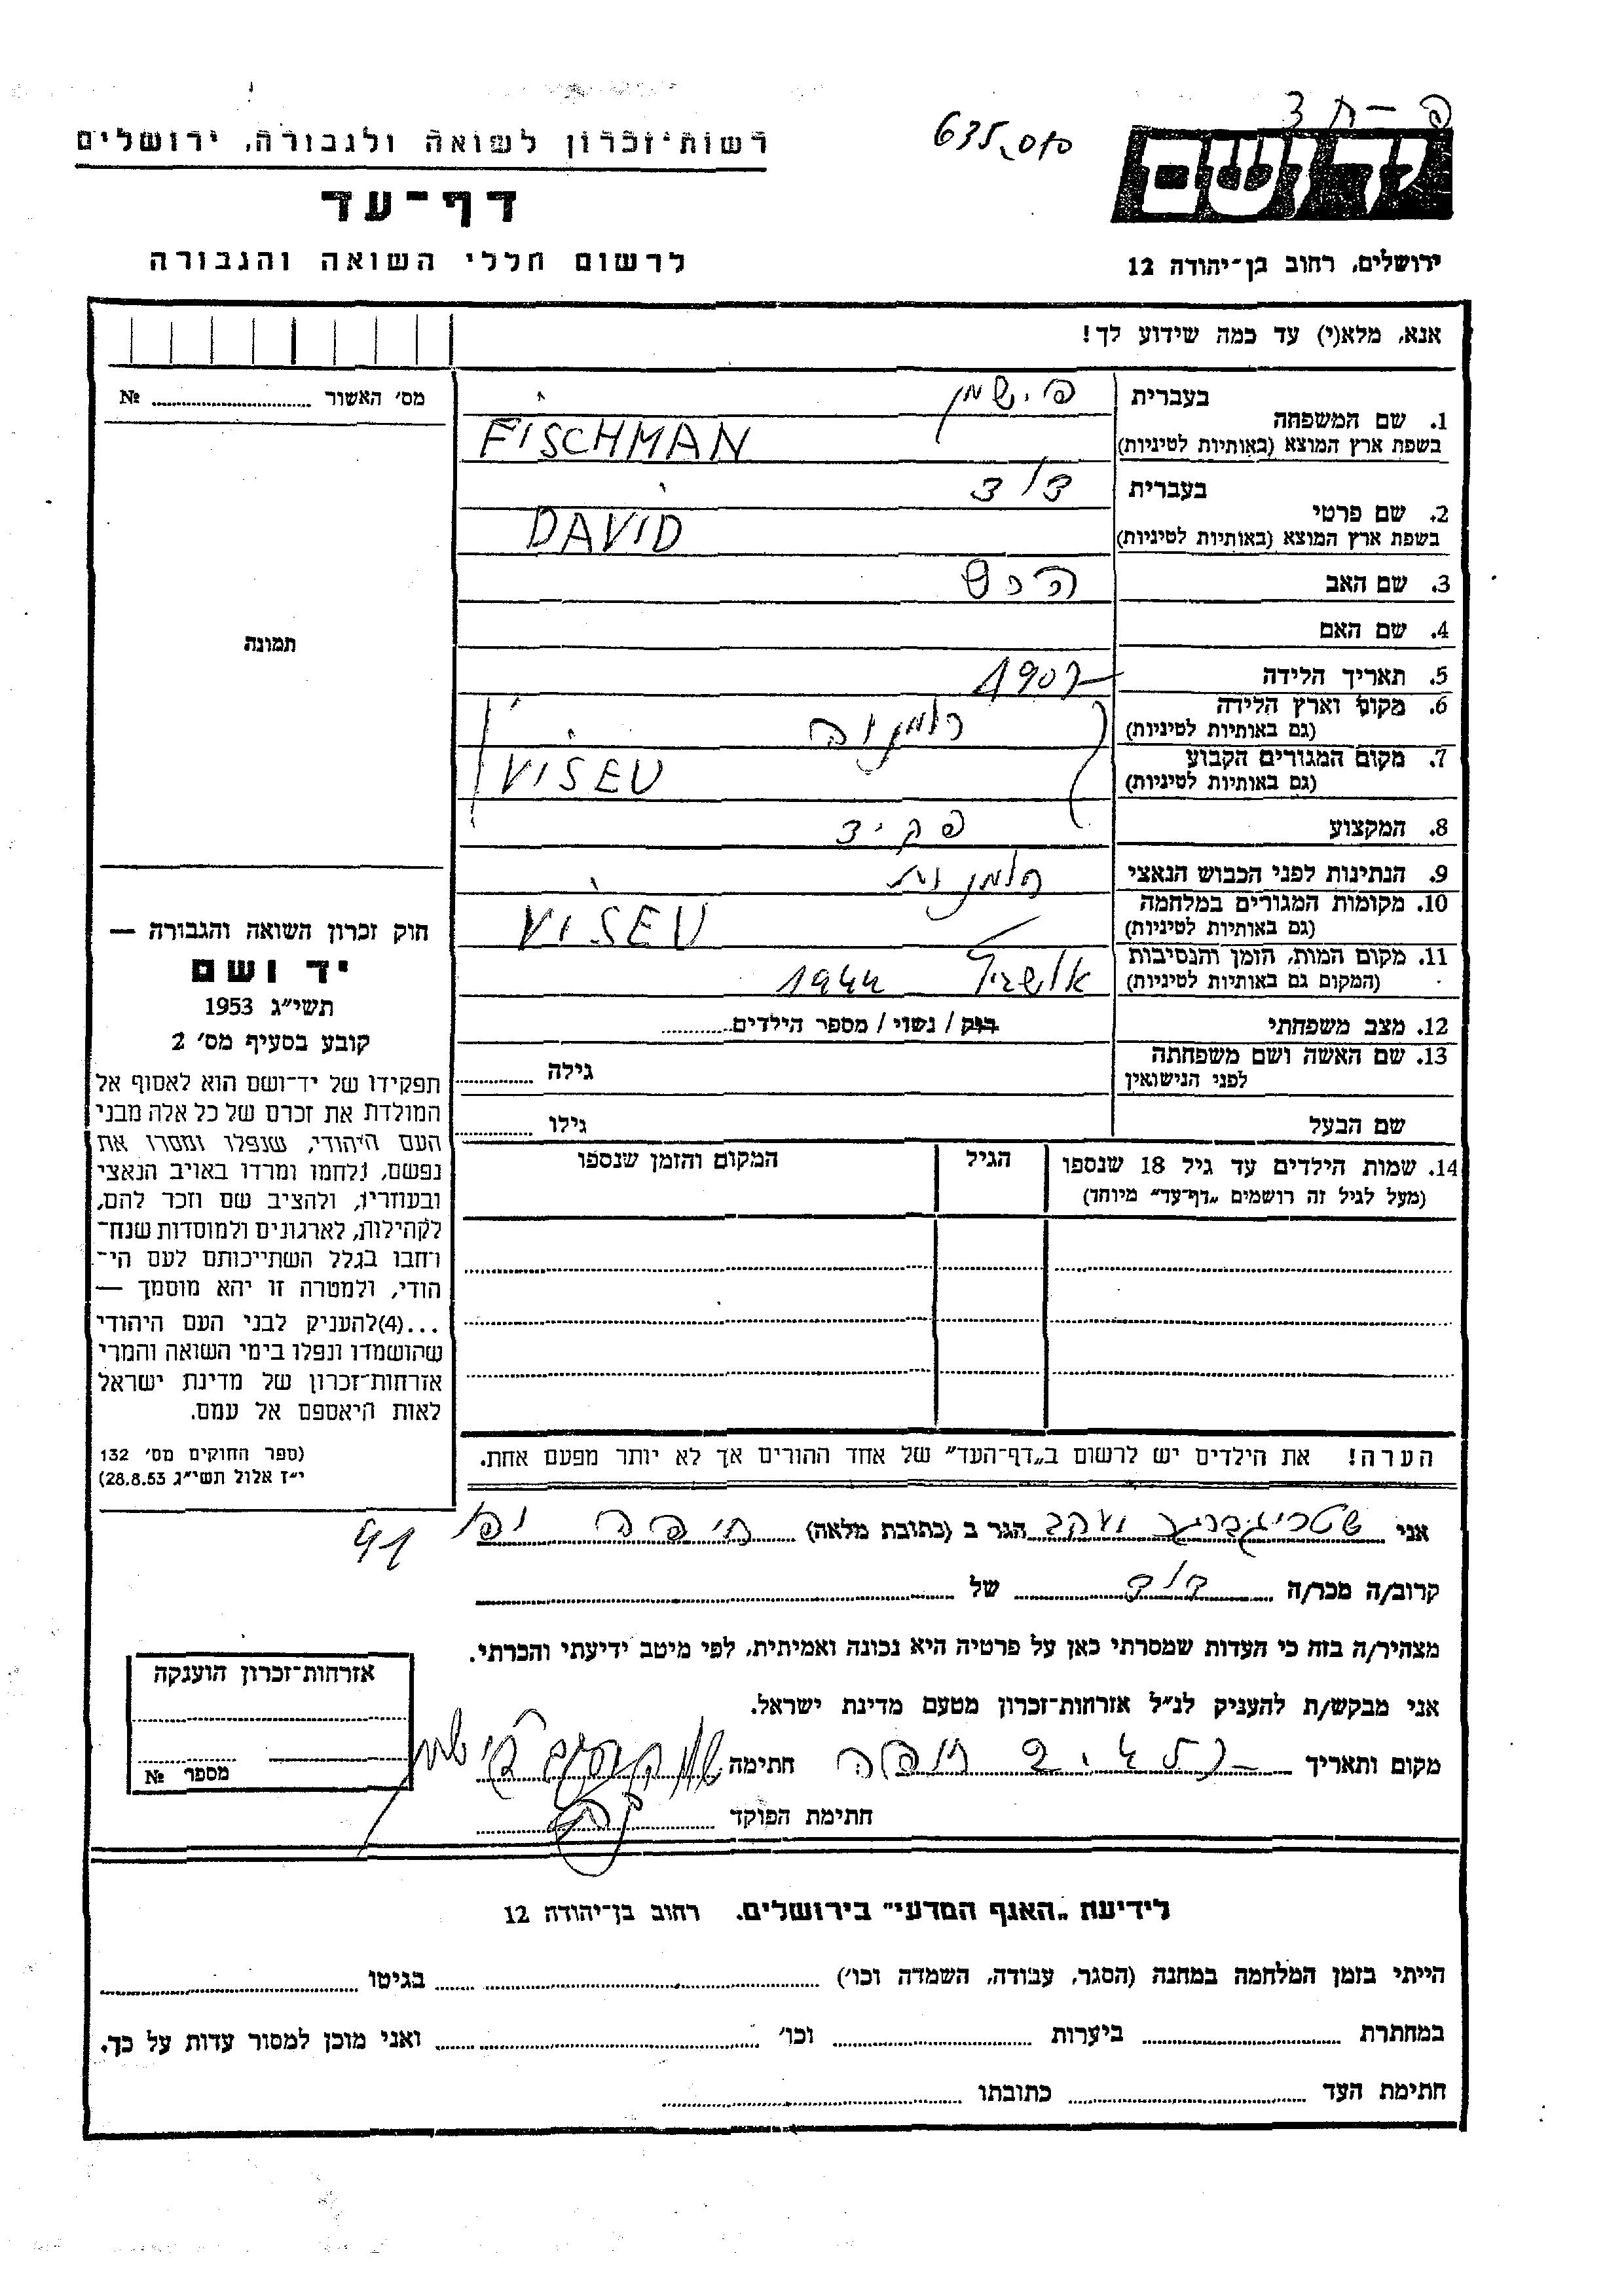 רשות־זכרון לשואה ולגבורה, ירושלים
דף־עד
לרשום חללי השואה והגבורה
635
פ-ח 3
יד ושם
ירושלים, רחוב בן־יהודה 12
אנא, מלא(י) עד כמה שידוע לך!
מס' האשור .......... №
תמונה
1. שם המשפחה
בעברית פישמן
בשפת ארץ המוצא (באותיות לטיניות) FISCHMAN
2. שם פרטי
בעברית דוד
בשפת ארץ המוצא (באותיות לטיניות) DAVID
3. שם האב הרש
4. שם האם
5. תאריך הלידה 1907
6. מקום וארץ הלידה רומניה
(גם באותיות לטיניות)
7. מקום המגורים הקבוע VISEU
(גם באותיות לטיניות)
8. המקצוע פקיד
9. הנתינות לפני הכבוש הנאצי רומנית
10. מקומות המגורים במלחמה VISEU
(גם באותיות לטיניות)
11. מקום המות, הזמן והנסיבות אושביץ 1944
(המקום גם באותיות לטיניות)
12. מצב משפחתי רוק / נשוי / מספר הילדים..........
13. שם האשה ושם משפחתה
לפני הנישואין גילה ..........
שם הבעל גילו ..........
14. שמות הילדים עד גיל 18 שנספו הגיל המקום והזמן שנספו
(מעל לגיל זה רושמים „דף־עד" מיוחד)
הערה! את הילדים יש לרשום ב„דף־העד" של אחד ההורים אך לא יותר מפעם אחת.
חוק זכרון השואה והגבורה —
יד ושם
תשי״ג 1953
קובע בסעיף מס' 2
תפקידו של יד־ושם הוא לאסוף אל
המולדת את זכרם של כל אלה מבני
העם היהודי, שנפלו ומסרו את
נפשם, נלחמו ומרדו באויב הנאצי
ובעוזריו, ולהציב שם וזכר להם,
לקהילות, לארגונים ולמוסדות שנח־
רחבו בגלל השתייכותם לעם הי־
הודי, ולמטרה זו יהא מוסמך —
...(4)להעניק לבני העם היהודי
שהושמדו ונפלו בימי השואה והמרי
אזרחות־זכרון של מדינת ישראל
לאות היאספם אל עמם.
(ספר החוקים מס' 132
י״ז אלול תשי״ג 28.8.53)
אני יעקב הגר ב (כתובת מלאה) חיפה יפו 41
קרוב/ה מכר/ה דוד של
מצהיר/ה בזה כי העדות שמסרתי כאן על פרטיה היא נכונה ואמיתית, לפי מיטב ידיעתי והכרתי.
אני מבקש/ת להעניק לנ״ל אזרחות־זכרון מטעם מדינת ישראל.
מקום ותאריך חיפה חתימה
חתימת הפוקד
אזרחות־זכרון הוענקה
מספר №
לידיעת „האגף המדעי" בירושלים. רחוב בן־יהודה 12
הייתי בזמן המלחמה במחנה (הסגר, עבודה, השמדה וכו') .......... בגיטו ..........
במחתרת .......... ביערות .......... וכו' .......... ואני מוכן למסור עדות על כך.
חתימת העד .......... כתובתו ..........